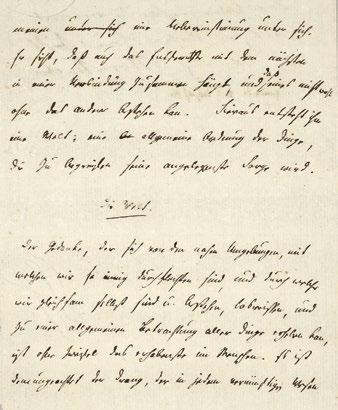 meinen unter sich eine Uebereinstimung unter sich.
Er sieht, daß auch das Entfernteste mit dem nächsten
in einer Verbindung zusammen hängt, und das eines nicht wohl
ohne das andere bestehen kan. Hieraus entsteht ihm
eine Welt; eine allgemeine Ordnung der Dinge,
die zu begreifen seine angelegenste Sorge wird.
Die Welt.
Der Gedanke, der sich von den nahen Umgebungen, mit
welchen wir so innig durchflochten sind und durch welche
wir gleichsam selbst sind u. bestehen, losreissen, und
zu einer allgemeinen Betrachtung aller Dinge erheben kan,
ist ohne Zweifel das erhabenste im Menschen. Es ist
demungeachtet der Drang, der in jedem vernünftigen Wesen